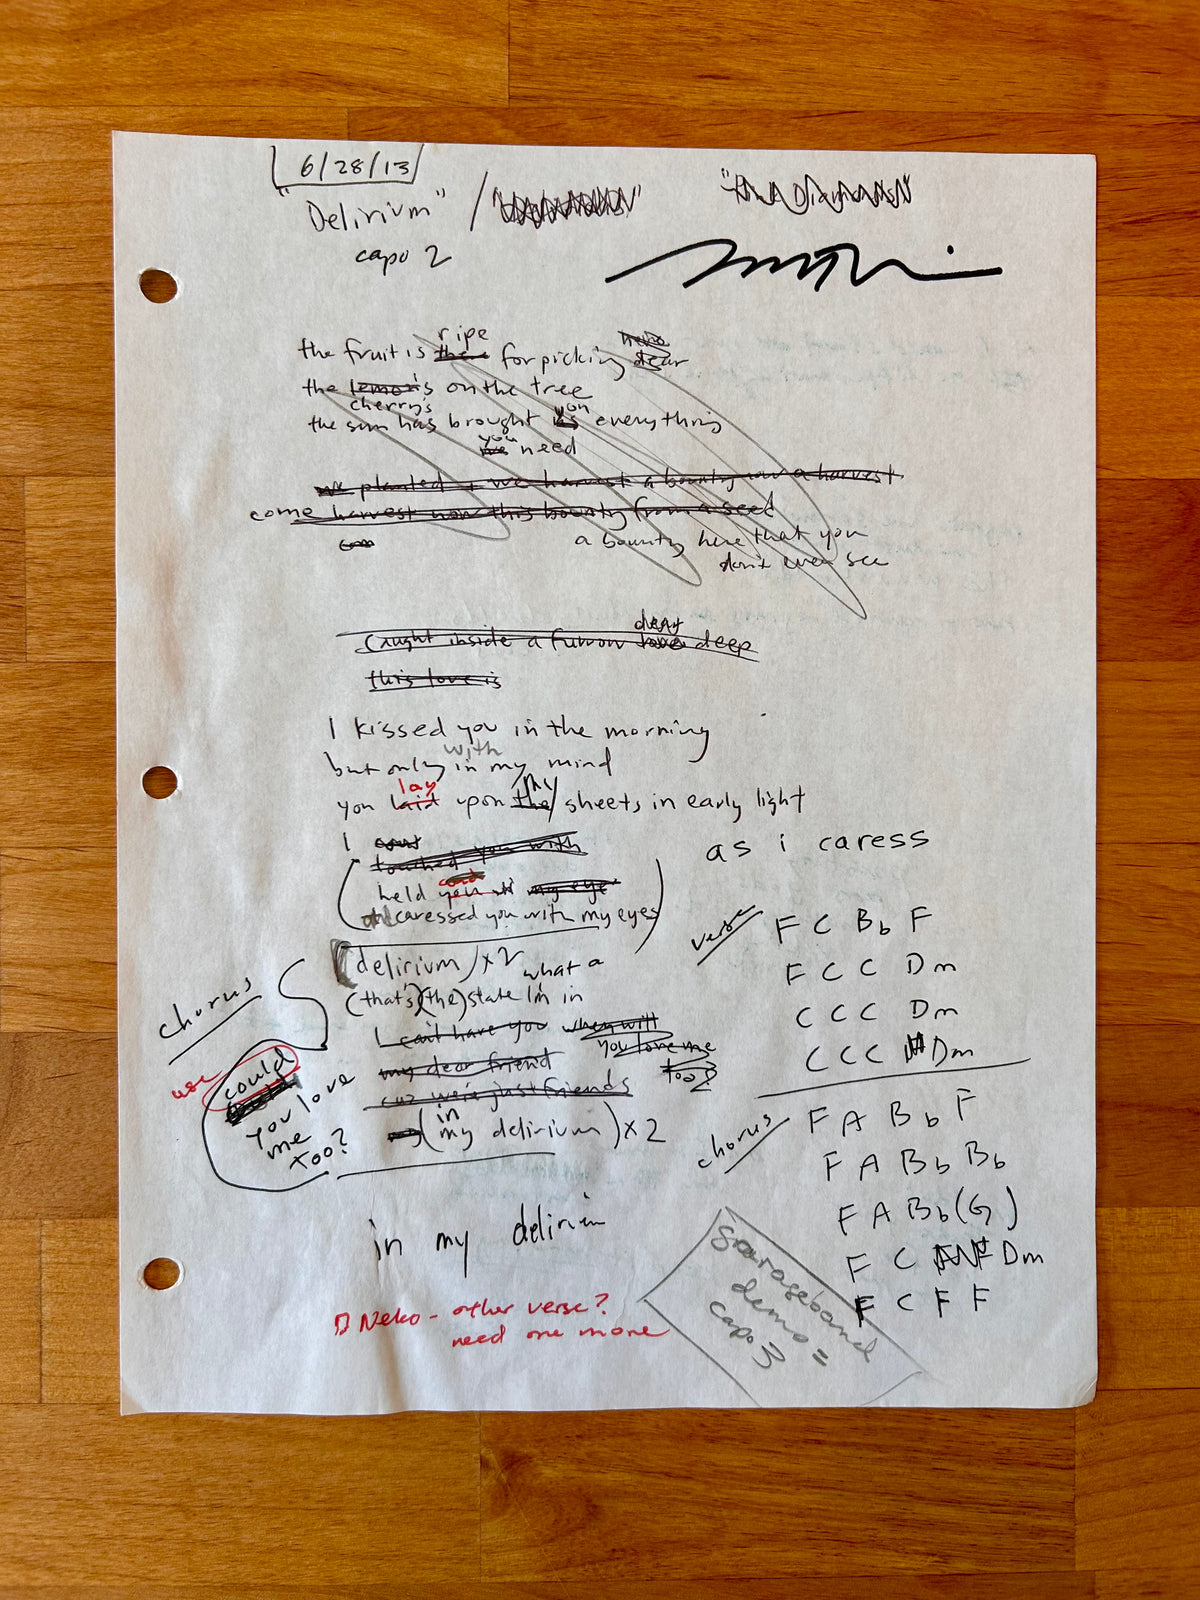 6/28/13
"Delirium" /
capo 2
ripe
the fruit is for picking dear
the lemon's on the tree
cherry's
you
the sun has brought us everything
you
we need
we planted + we harvest a bounty now a harvest
come harvest now this bounty from a seed
com
a bounty here that you
don't even see
deny
caught inside a furrow love deep
this love is
I kissed you in the morning
with
but only in my mind
lay my
you laid upon the sheets in early light
I
touched you with
as i caress
held you my eye
caressed you with my eyes
(delirium) x2 what a
(that's)(the) state I'm in
I can't have you when will
you love me
too?
my dear friend
cuz we're just friends
in
(my delirium) x2
chorus
use
could
you love
me
too?
verse
F C Bb F
F C C Dm
C C C Dm
C C C Dm
chorus
F A Bb F
F A Bb Bb
F A Bb (G)
F C Dm
F C F F
in my delirium
Neko - other verse?
need one more
garageband
demo =
capo 3